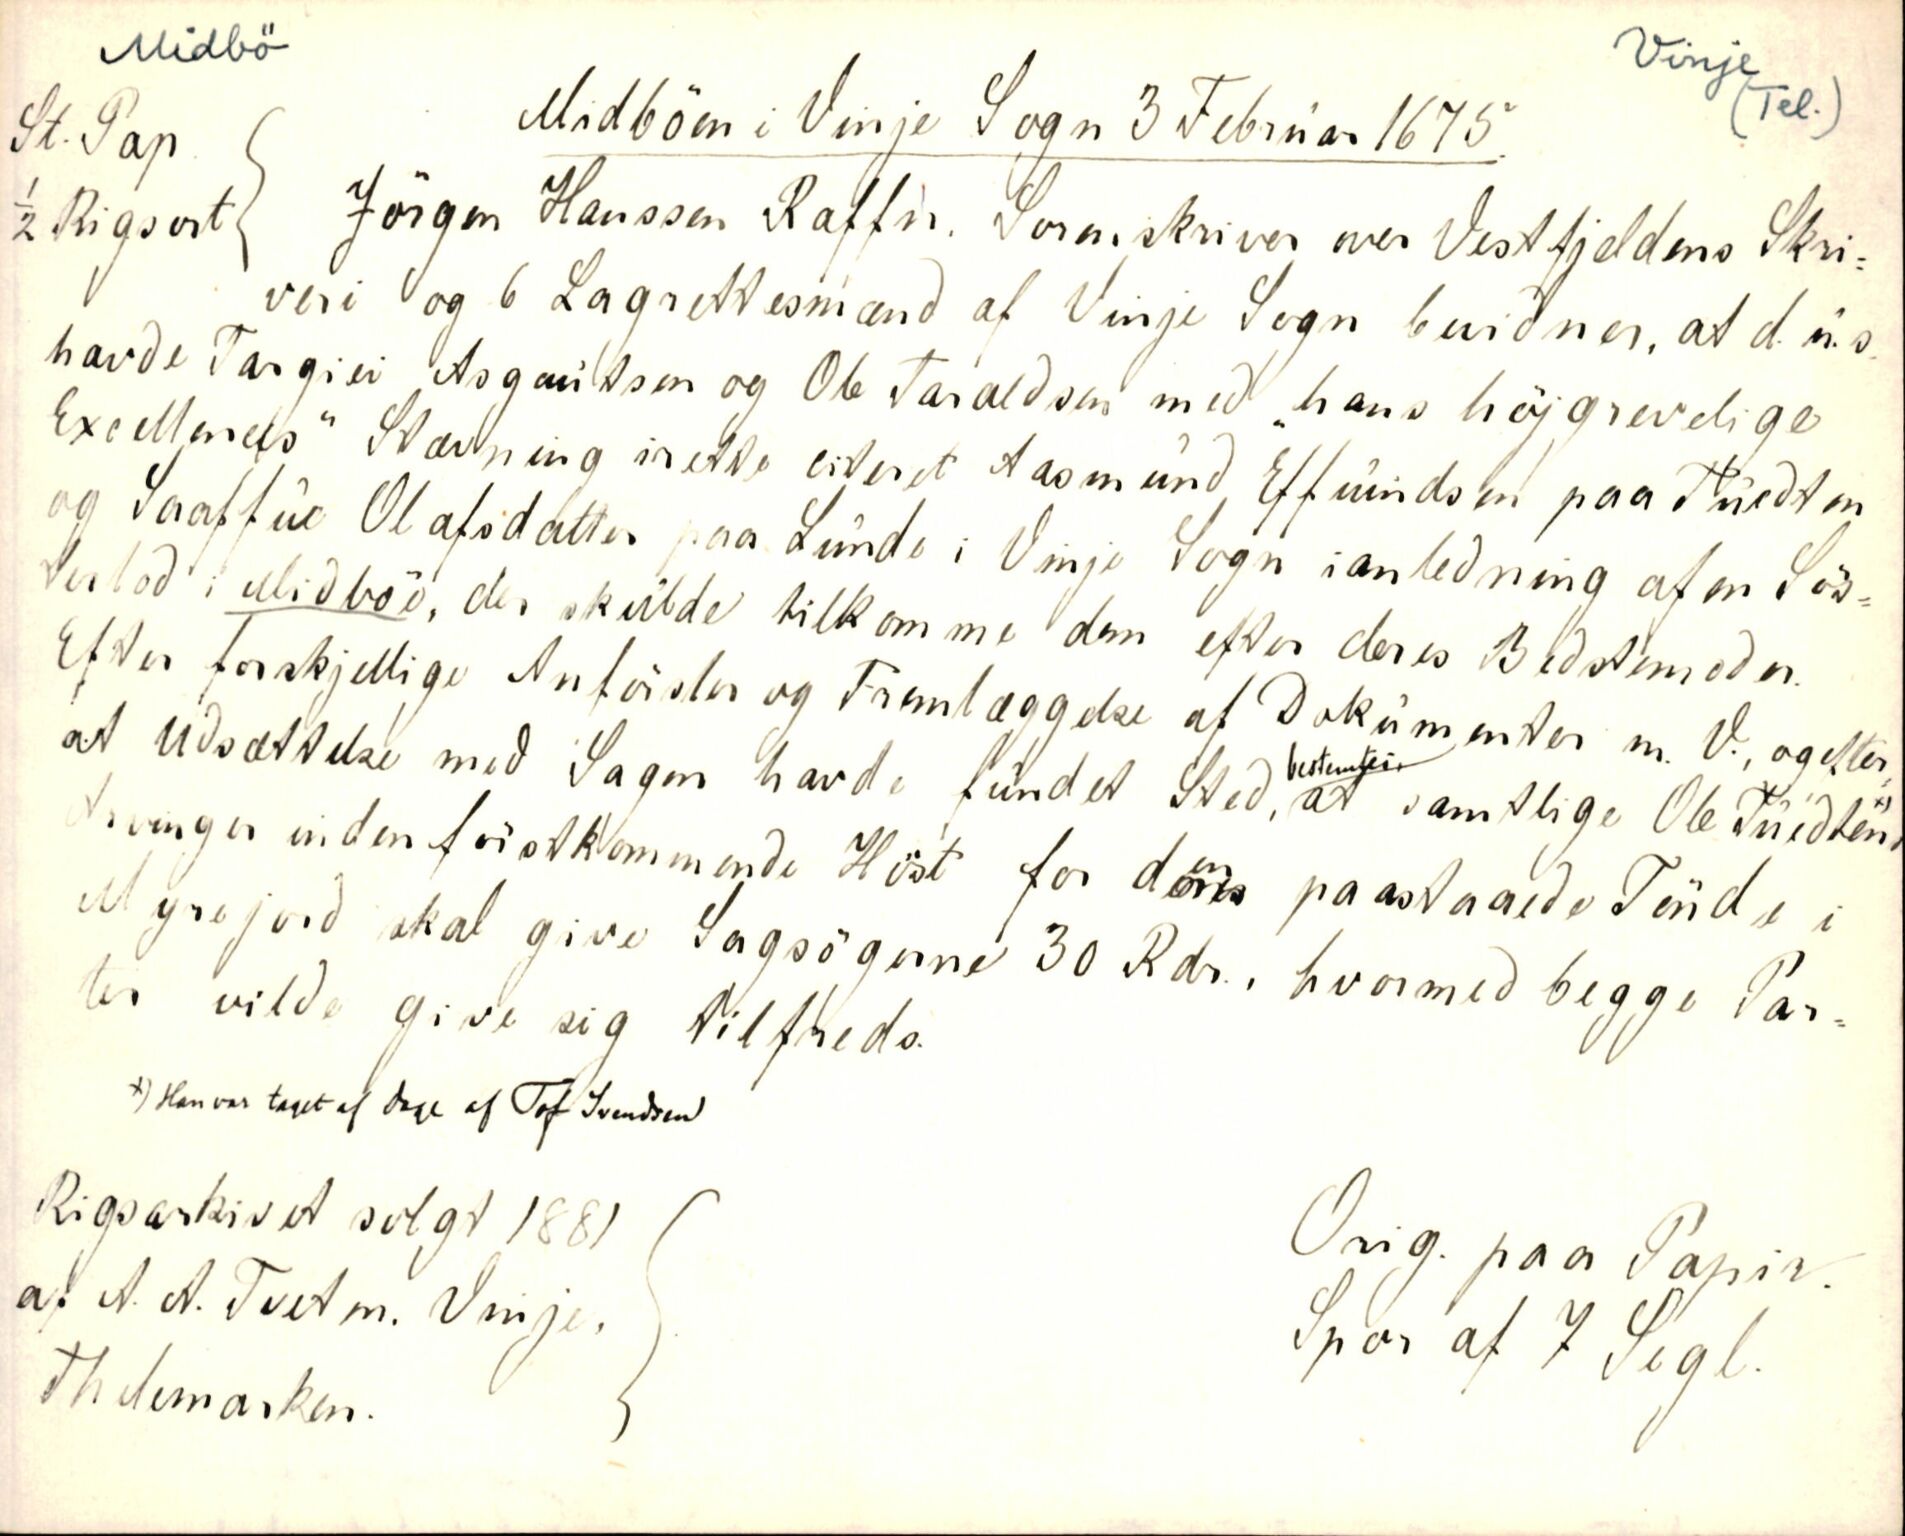 Midbö
Vinje
(Tel.)
St. Pap
1/2 Rigsort
Midböen i Vinje Sogn 3 Februar 1675.
Jörgen Hanssen Raffn. Sorenskriver over Vestfjeldens Skri=
veri og 6 Lagrettesmænd af Vinje Sogn bevidner, at d. u. s.
havde Targiei Asgautsen og Ole Taraldsen med "hans höjgrevelige
Excellences" Stævning irette citeret Aasmund Effuindsen paa Tuedten
og Saaffue Olafsdatter paa Lunde i Vinje Sogn ianledning af en Sös=
terlod i Midböe, der skulde tilkomme dem efter deres Bedstemoder.
Efter forskjellige Anförsler og Fremlæggelse af Dokumenter m. V., og efter,
at Udsættelse med Sagen havde fundet Sted, bestemtes, at samtlige Ole Tuedtens *)
Arvinger inden förstkommende Höst for den paastaaede Tönde i
Myrejord skal give Sagsögerne 30 Rdr., hvormed begge Par=
ter vilde give sig tilfreds.
*) Han var taget af Dage af Tof Svendsen
Rigsarkivet solgt 1881
af A. A. Tveten. Vinje,
Thelemarken.
Orig. paa Papir.
Spor af 7 Segl.